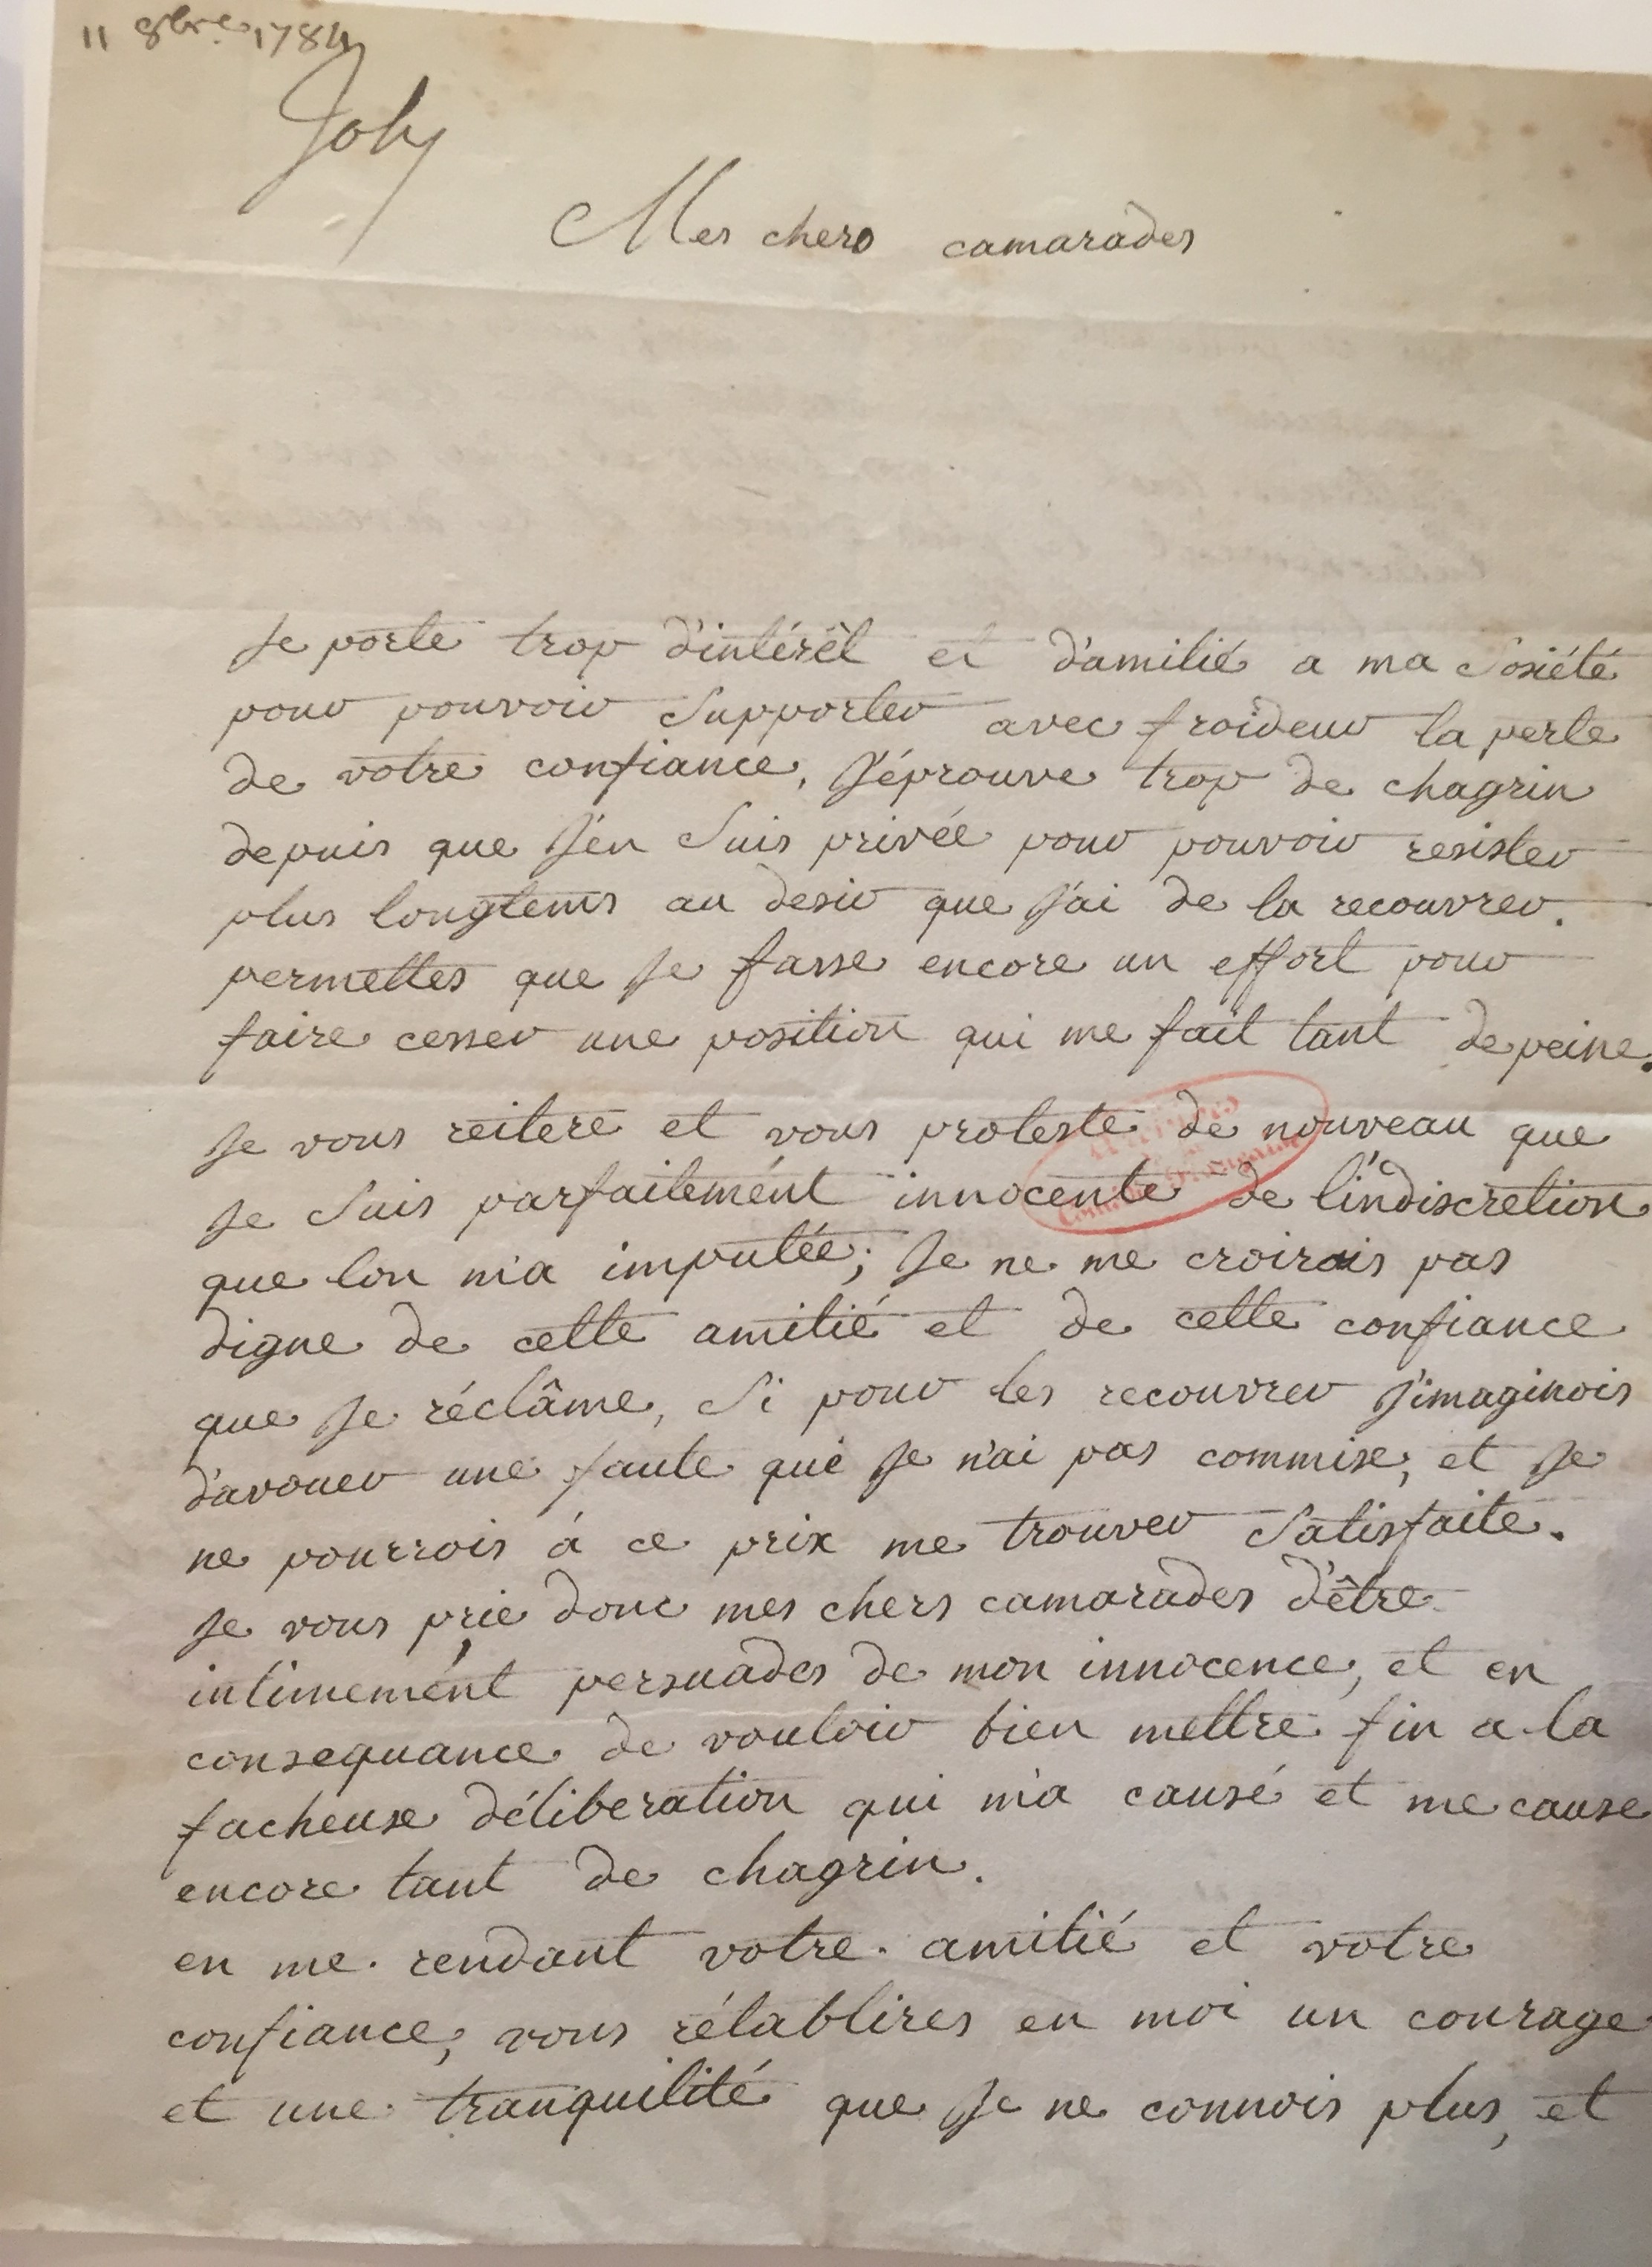 11 8bre 1784
Joly
Mes chers camarades
Je porte trop d'intérêt et d'amitié a ma Sosiété
pour pouvoir Supporter avec froideur la perte
de votre confiance, J'éprouve trop de chagrin
depuis que J'en Suis privée pour pouvoir resister
plus longtems au desir que J'ai de la recouvrer.
permettes que Je fasse encore un effort pour
faire cesser une position qui me fait tant de peine.
Je vous reitere et vous proteste de nouveau que
Je Suis parfaitement innocente de l'indiscretion
que lon m'a imputée; Je ne me croirois pas
digne de cette amitié et de cette confiance
que Je réclâme, Si pour les recouvrer J'imaginois
d'avouer une faute que Je n'ai pas commise, et Je
ne pourrois à ce prix me trouver Satisfaite.
Je vous prie donc mes chers camarades d'être
intimement persuades de mon innocence, et en
consequance de vouloir bien mettre fin a la
facheuse déliberation qui m'a causé et me cause
encore tant de chagrin.
en me rendant votre amitié et votre
confiance, vous rétablires en moi un courage
et une tranquilité que Je ne connois plus, et